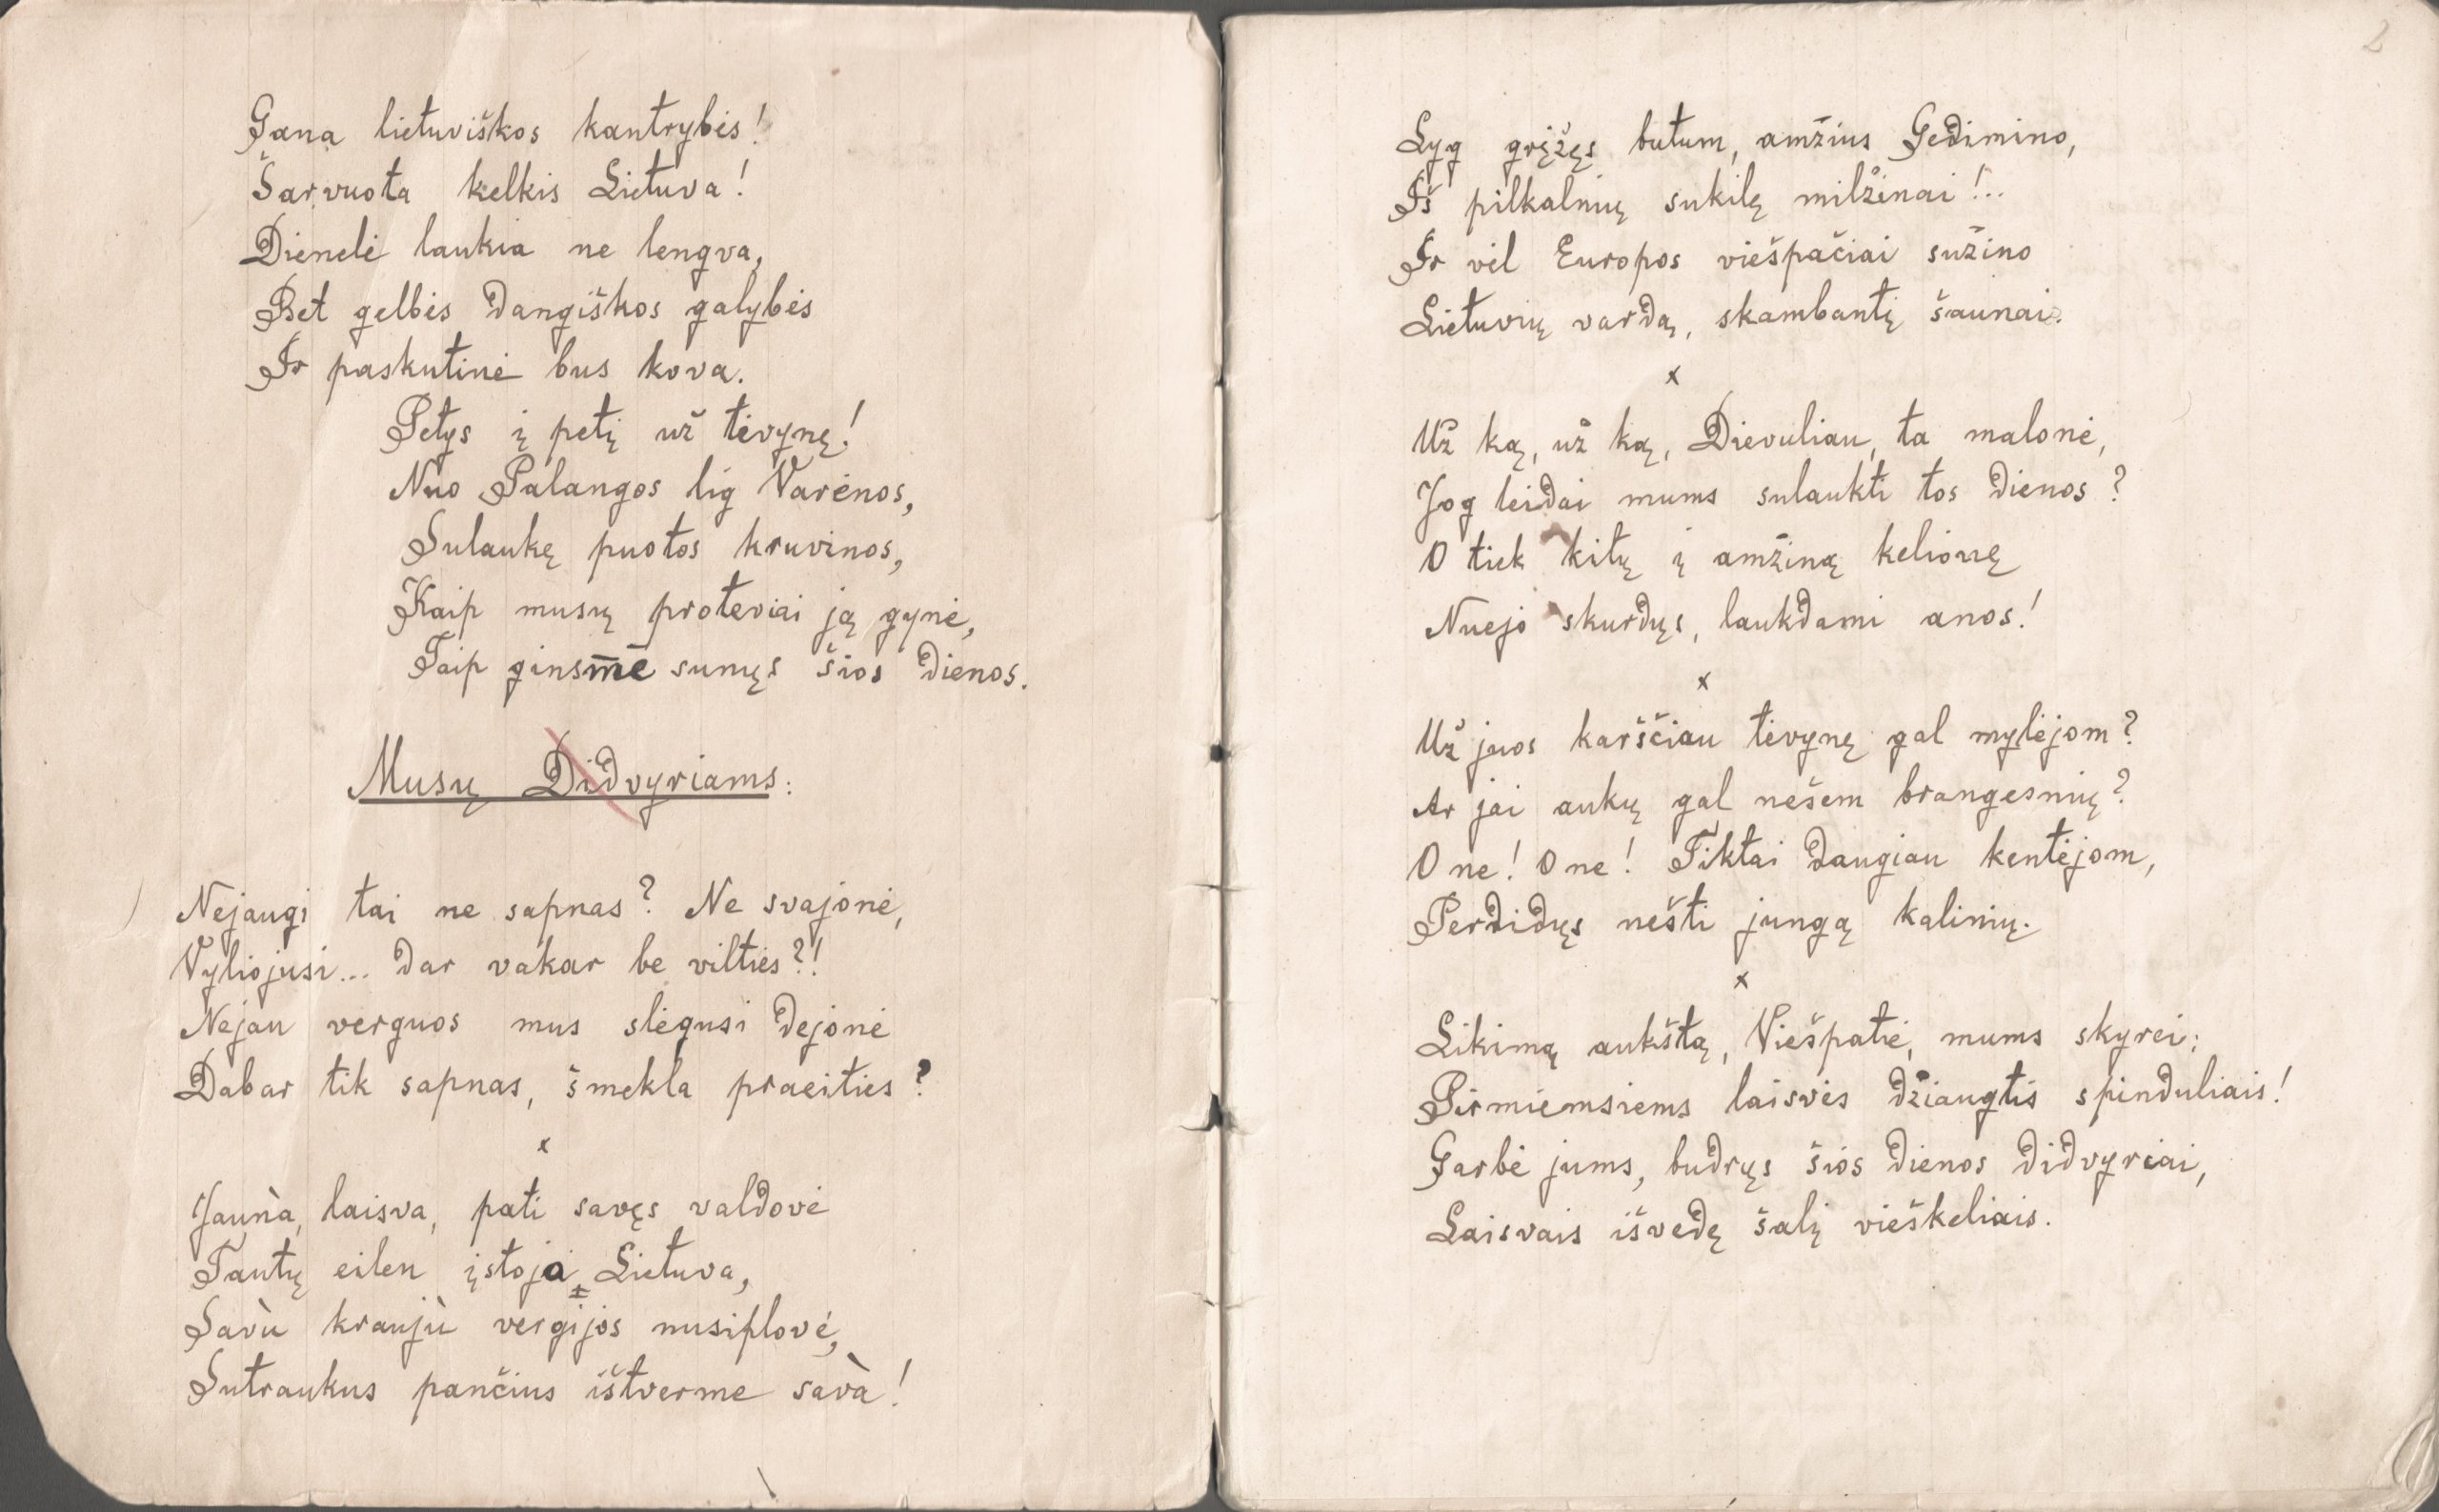 Gana lietuviškos kantrybės!
Šarvuota kelkis Lietuva!
Dienelė laukia ne lengva,
Bet gelbės dangiškos galybės
Ir paskutinė bus kova.
Petys į petį už tėvynę!
Nuo Palangos lig Varėnos,
Sulaukę puotos kruvinos,
Kaip musų protėviai ją gynė,
Taip ginsmē sunųs šios dienos.
Musų Didvyriams:
Nejaugi tai ne sapnas? Ne svajonė,
Vyliojusi... dar vakar be vilties?!
Nejau verguos mus slėgusi dejonė
Dabar tik sapnas, šmekla praeities?
x
Jaunà, laisva, pati savęs valdovė
Tautų eilen įstoja Lietuva,
Savù kraujù vergijos nusiplovė,
Sutraukus pančius ištverme savà!
2
Lyg grįžęs butum, amžius Gedimino,
Iš pilkalnių sukilę milžinai!..
Ir vėl Europos viešpačiai sužino
Lietuvių vardą, skambantį šaunai.
x
Už ką, už ką, Dievuliau, ta malonė,
Jog leidai mums sulaukti tos dienos?
O tiek kitų į amžiną kelionę
Nuėjo skurdųs, laukdami anos!
x
Už juos karščiau tėvynę gal mylėjom?
Ar jai aukų gal nešėm brangesnių?
O ne! O ne! Tiktai daugiau kentėjom,
Perdidųs nešti jungą kalinių.
x
Likimą aukštą, Viešpatie, mums skyrei:
Pirmiemsiems laisvės džiaugtis spinduliais!
Garbė jums, budrųs šios dienos didvyriai,
Laisvais išvedę šalį vieškeliais.